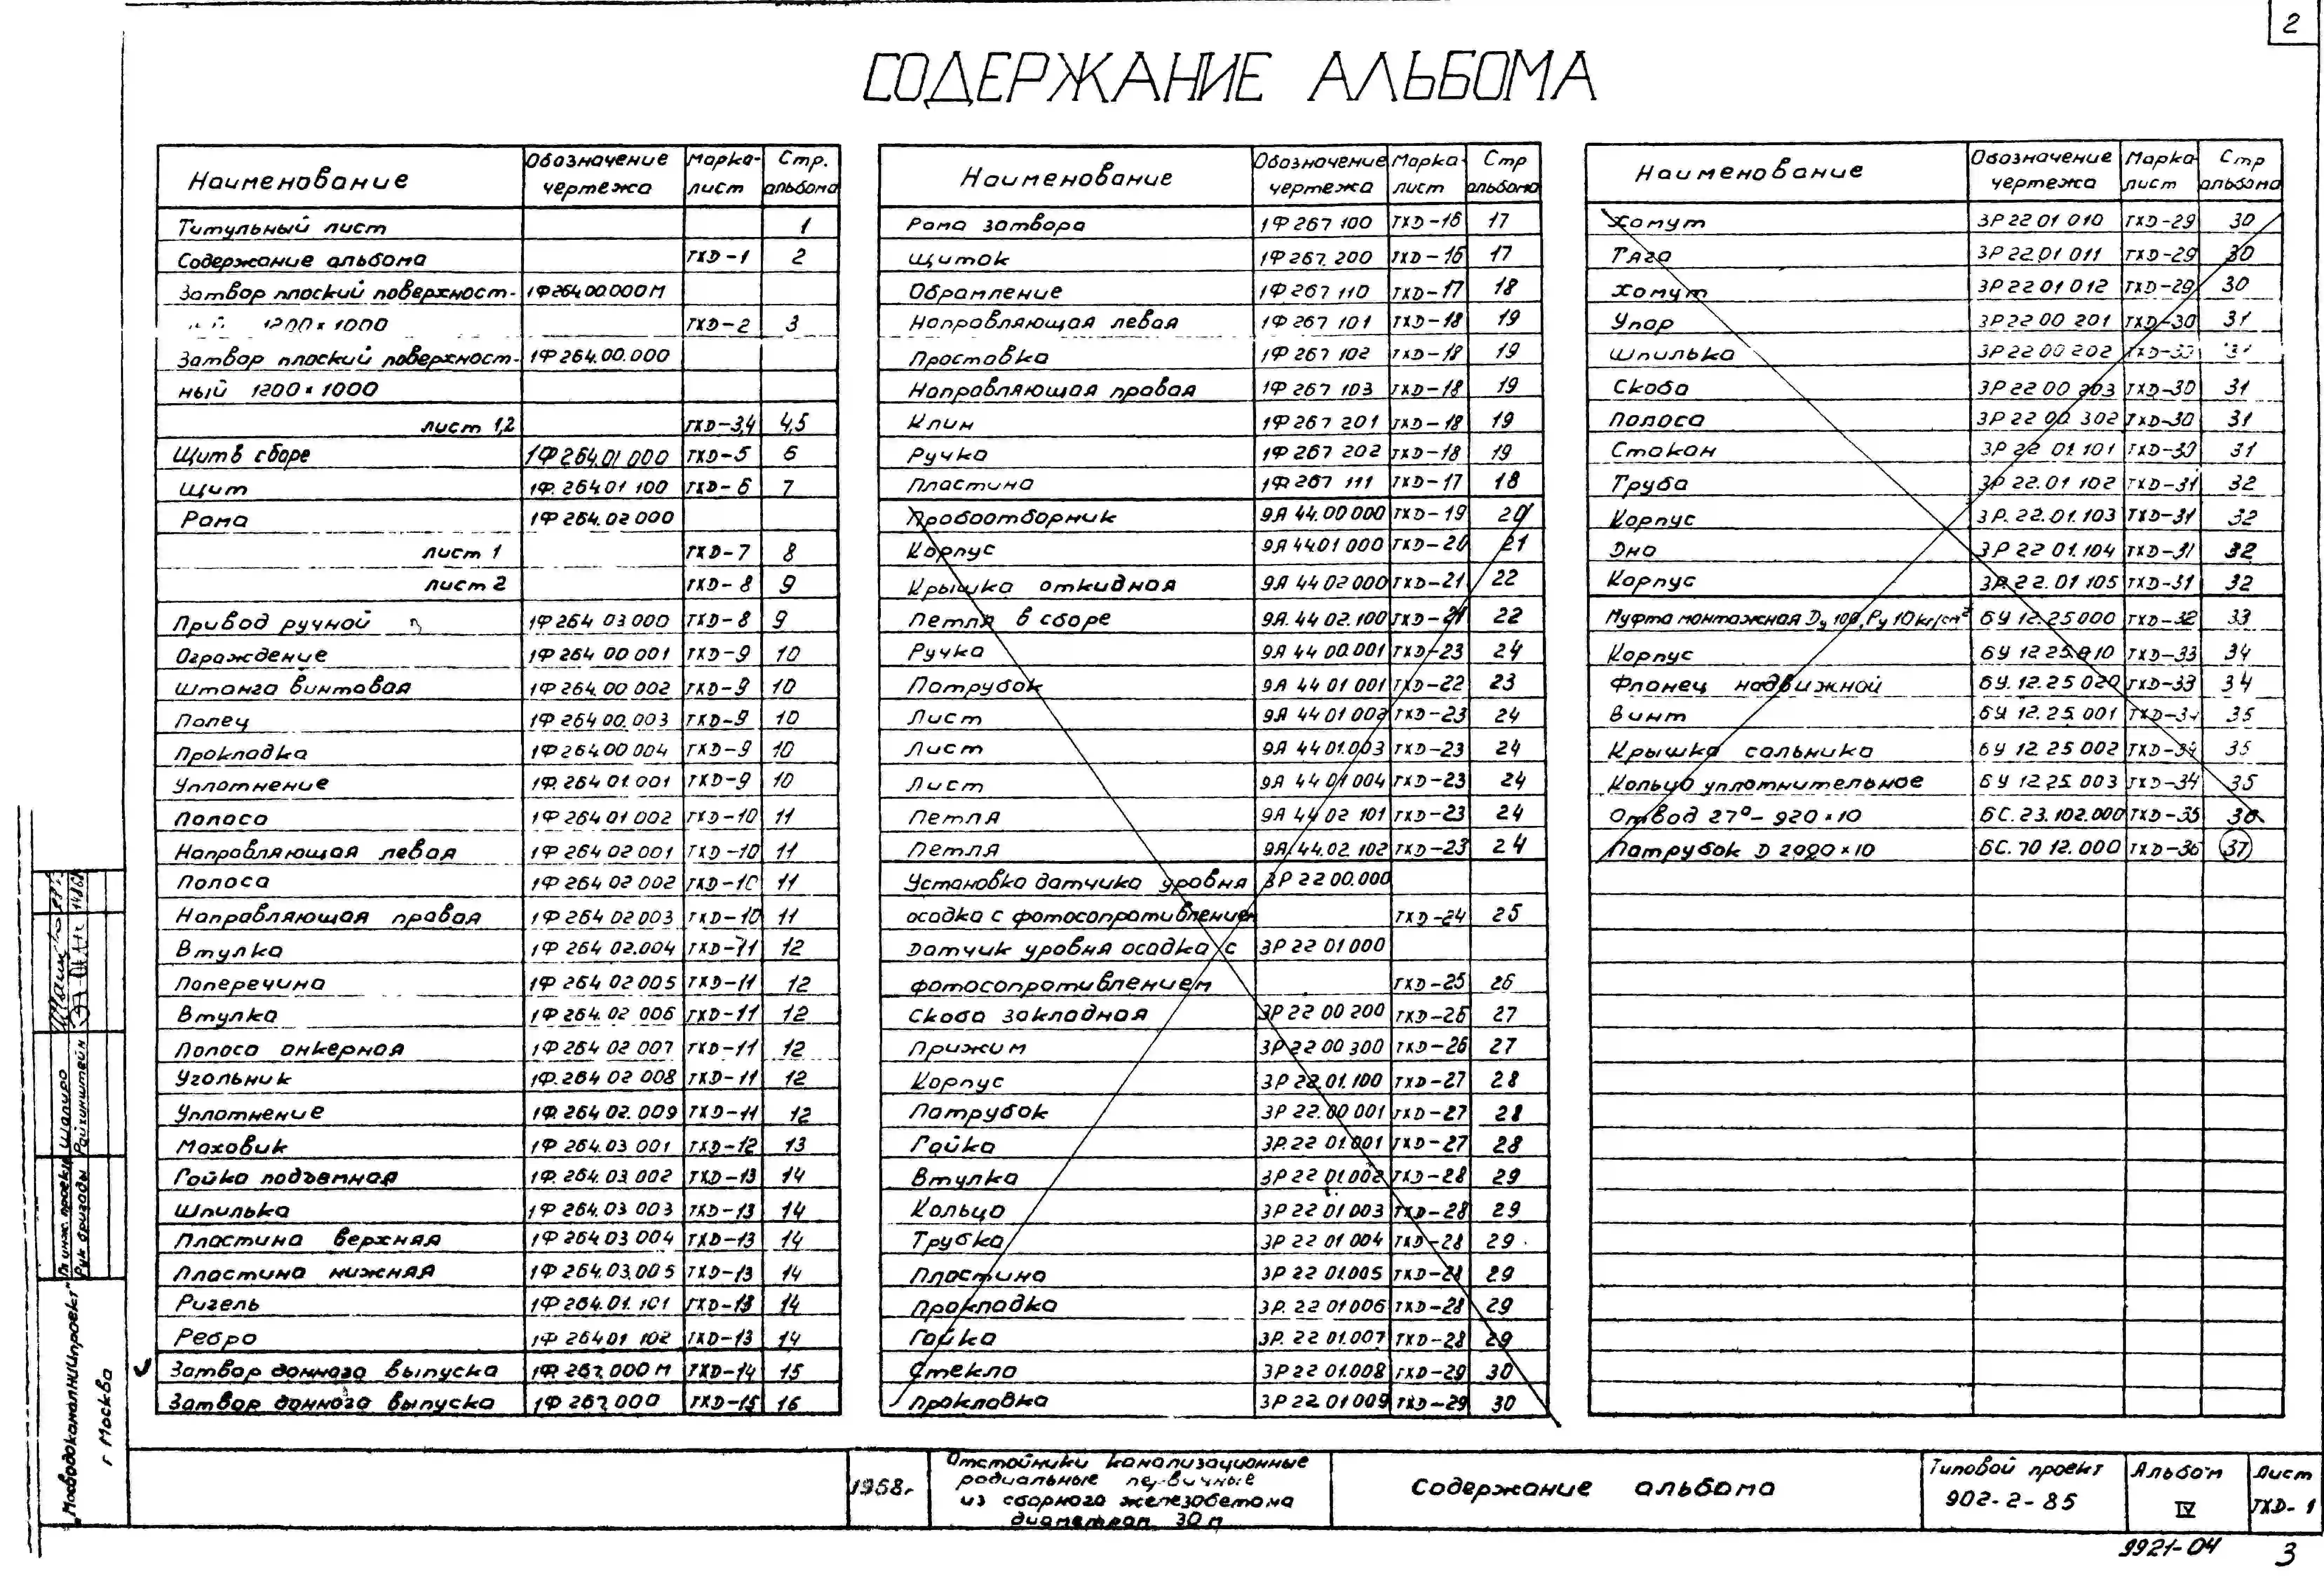 2
СОДЕРЖАНИЕ АЛЬБОМА
Наименование | Обозначение чертежа | Марка-лист | Стр. альбома
Титульный лист 1
Содержание альбома ТХD-1 2
Затвор плоский поверхност- 1Ф264.00.000М
1200×1000 ТХD-2 3
Затвор плоский поверхност- 1Ф264.00.000
ный 1200×1000
лист 1,2 ТХD-3,4 4,5
Щит в сборе 1Ф264.01 000 ТХD-5 6
Щит 1Ф.264.01 100 ТХD-6 7
Рама 1Ф264.02 000
лист 1 ТХD-7 8
лист 2 ТХD-8 9
Привод ручной 1Ф264 03 000 ТХD-8 9
Ограждение 1Ф264 00 001 ТХD-9 10
Штанга винтовая 1Ф264.00 002 ТХD-9 10
Палец 1Ф264 00.003 ТХD-9 10
Прокладка 1Ф264.00 004 ТХD-9 10
Уплотнение 1Ф.264 01.001 ТХD-9 10
Полоса 1Ф264 01 002 ТХD-10 11
Направляющая левая 1Ф264 02 001 ТХD-10 11
Полоса 1Ф264 02 002 ТХD-10 11
Направляющая правая 1Ф264 02 003 ТХD-10 11
Втулка 1Ф 264 02.004 ТХD-11 12
Поперечина 1Ф 264 02 005 ТХD-11 12
Втулка 1Ф264.02 006 ТХD-11 12
Полоса анкерная 1Ф264 02 007 ТХD-11 12
Угольник 1Ф.264 02 008 ТХD-11 12
Уплотнение 1Ф.264 02.009 ТХD-11 12
Маховик 1Ф 264.03 001 ТХD-12 13
Гайка подъемная 1Ф.264.03.002 ТХD-13 14
Шпилька 1Ф264.03 003 ТХD-13 14
Пластина верхняя 1Ф264 03 004 ТХD-13 14
Пластина нижняя 1Ф264.03.005 ТХD-13 14
Ригель 1Ф264.01.101 ТХD-13 14
Ребро 1Ф 264 01 102 ТХD-13 14
Затвор донного выпуска 1Ф.267.000 М ТХD-14 15
Затвор донного выпуска 1Ф267.000 ТХD-15 16
Наименование | Обозначение чертежа | Марка-лист | Стр альбома
Рама затвора 1Ф267 100 ТХD-16 17
Щиток 1Ф267. 200 ТХD-16 17
Обрамление 1Ф267 110 ТХD-17 18
Направляющая левая 1Ф267 101 ТХD-18 19
Проставка 1Ф267 102 ТХD-18 19
Направляющая правая 1Ф267 103 ТХD-18 19
Клин 1Ф267 201 ТХD-18 19
Ручка 1Ф267 202 ТХD-18 19
Пластина 1Ф267 111 ТХD-17 18
Пробоотборник 9Я 44.00 000 ТХD-19 20
Корпус 9Я 44.01 000 ТХD-20 21
Крышка откидная 9Я 44 02 000 ТХD-21 22
Петля в сборе 9Я. 44 02.100 ТХD-21 22
Ручка 9Я 44 00.001 ТХD-23 24
Патрубок 9Я 44 01 001 ТХD-22 23
Лист 9Я 44 01 002 ТХD-23 24
Лист 9Я 44 01.003 ТХD-23 24
Лист 9Я 44 01 004 ТХD-23 24
Петля 9Я 44 02 101 ТХD-23 24
Петля 9Я.44.02.102 ТХD-23 24
Установка датчика уровня 3Р 22 00.000
осадка с фотосопротивлением ТХD-24 25
Датчик уровня осадка с 3Р 22 01 000
фотосопротивлением ТХD-25 26
Скоба закладная 3Р 22 00 200 ТХD-26 27
Прижим 3Р 22 00 300 ТХD-26 27
Корпус 3Р 22.01.100 ТХD-27 28
Патрубок 3Р 22.00 001 ТХD-27 28
Гайка 3Р.22 01 001 ТХD-27 28
Втулка 3Р 22 01.002 ТХD-28 29
Кольцо 3Р 22 01 003 ТХD-28 29
Трубка 3Р 22 01 004 ТХD-28 29
Пластина 3Р 22 01.005 ТХD-28 29
Прокладка 3Р. 22 01 006 ТХD-28 29
Гайка 3Р. 22 01.007 ТХD-28 29
Стекло 3Р 22 01.008 ТХD-29 30
Прокладка 3Р 22 01 009 ТХD-29 30
Наименование | Обозначение чертежа | Марка лист | Стр альбома
Хомут 3Р 22 01 010 ТХD-29 30
Тяга 3Р 22.01 011 ТХD-29 30
Хомут 3Р 22 01 012 ТХD-29 30
Упор 3Р 22 00 201 ТХD-30 31
Шпилька 3Р 22 00 202 ТХD-30 31
Скоба 3Р 22 00 203 ТХD-30 31
Полоса 3Р 22 00 302 ТХD-30 31
Стакан 3Р 22 01.101 ТХD-30 31
Труба 3Р 22.01 102 ТХD-31 32
Корпус 3Р. 22.01.103 ТХD-31 32
Дно 3Р 22 01.104 ТХD-31 32
Корпус 3Р. 22. 01 105 ТХD-31 32
Муфта монтажная Dу 100, Ру 10кг/см² 6У 12.25 000 ТХD-32 33
Корпус 6У 12 25.010 ТХD-33 34
Фланец надвижной 6У. 12. 25 020 ТХD-33 34
Винт 6У 12. 25. 001 ТХD-34 35
Крышка сальника 6У 12 25 002 ТХD-34 35
Кольцо уплотнительное 6У 12.25. 003 ТХD-34 35
Отвод 27°- 920×10 6С. 23. 102.000 ТХD-35 36
Патрубок D 2020×10 6С. 70 12. 000 ТХD-36 37
Гл инж. проекта Шапиро
Рук бригады Райхинштейн
Мосводоканалниипроект
г Москва
1968г.
Отстойники канализационные
радиальные первичные
из сборного железобетона
диаметром 30 м
Содержание альбома
Типовой проект
902-2-85
Альбом
IV
Лист
ТХD-1
9921-04
3